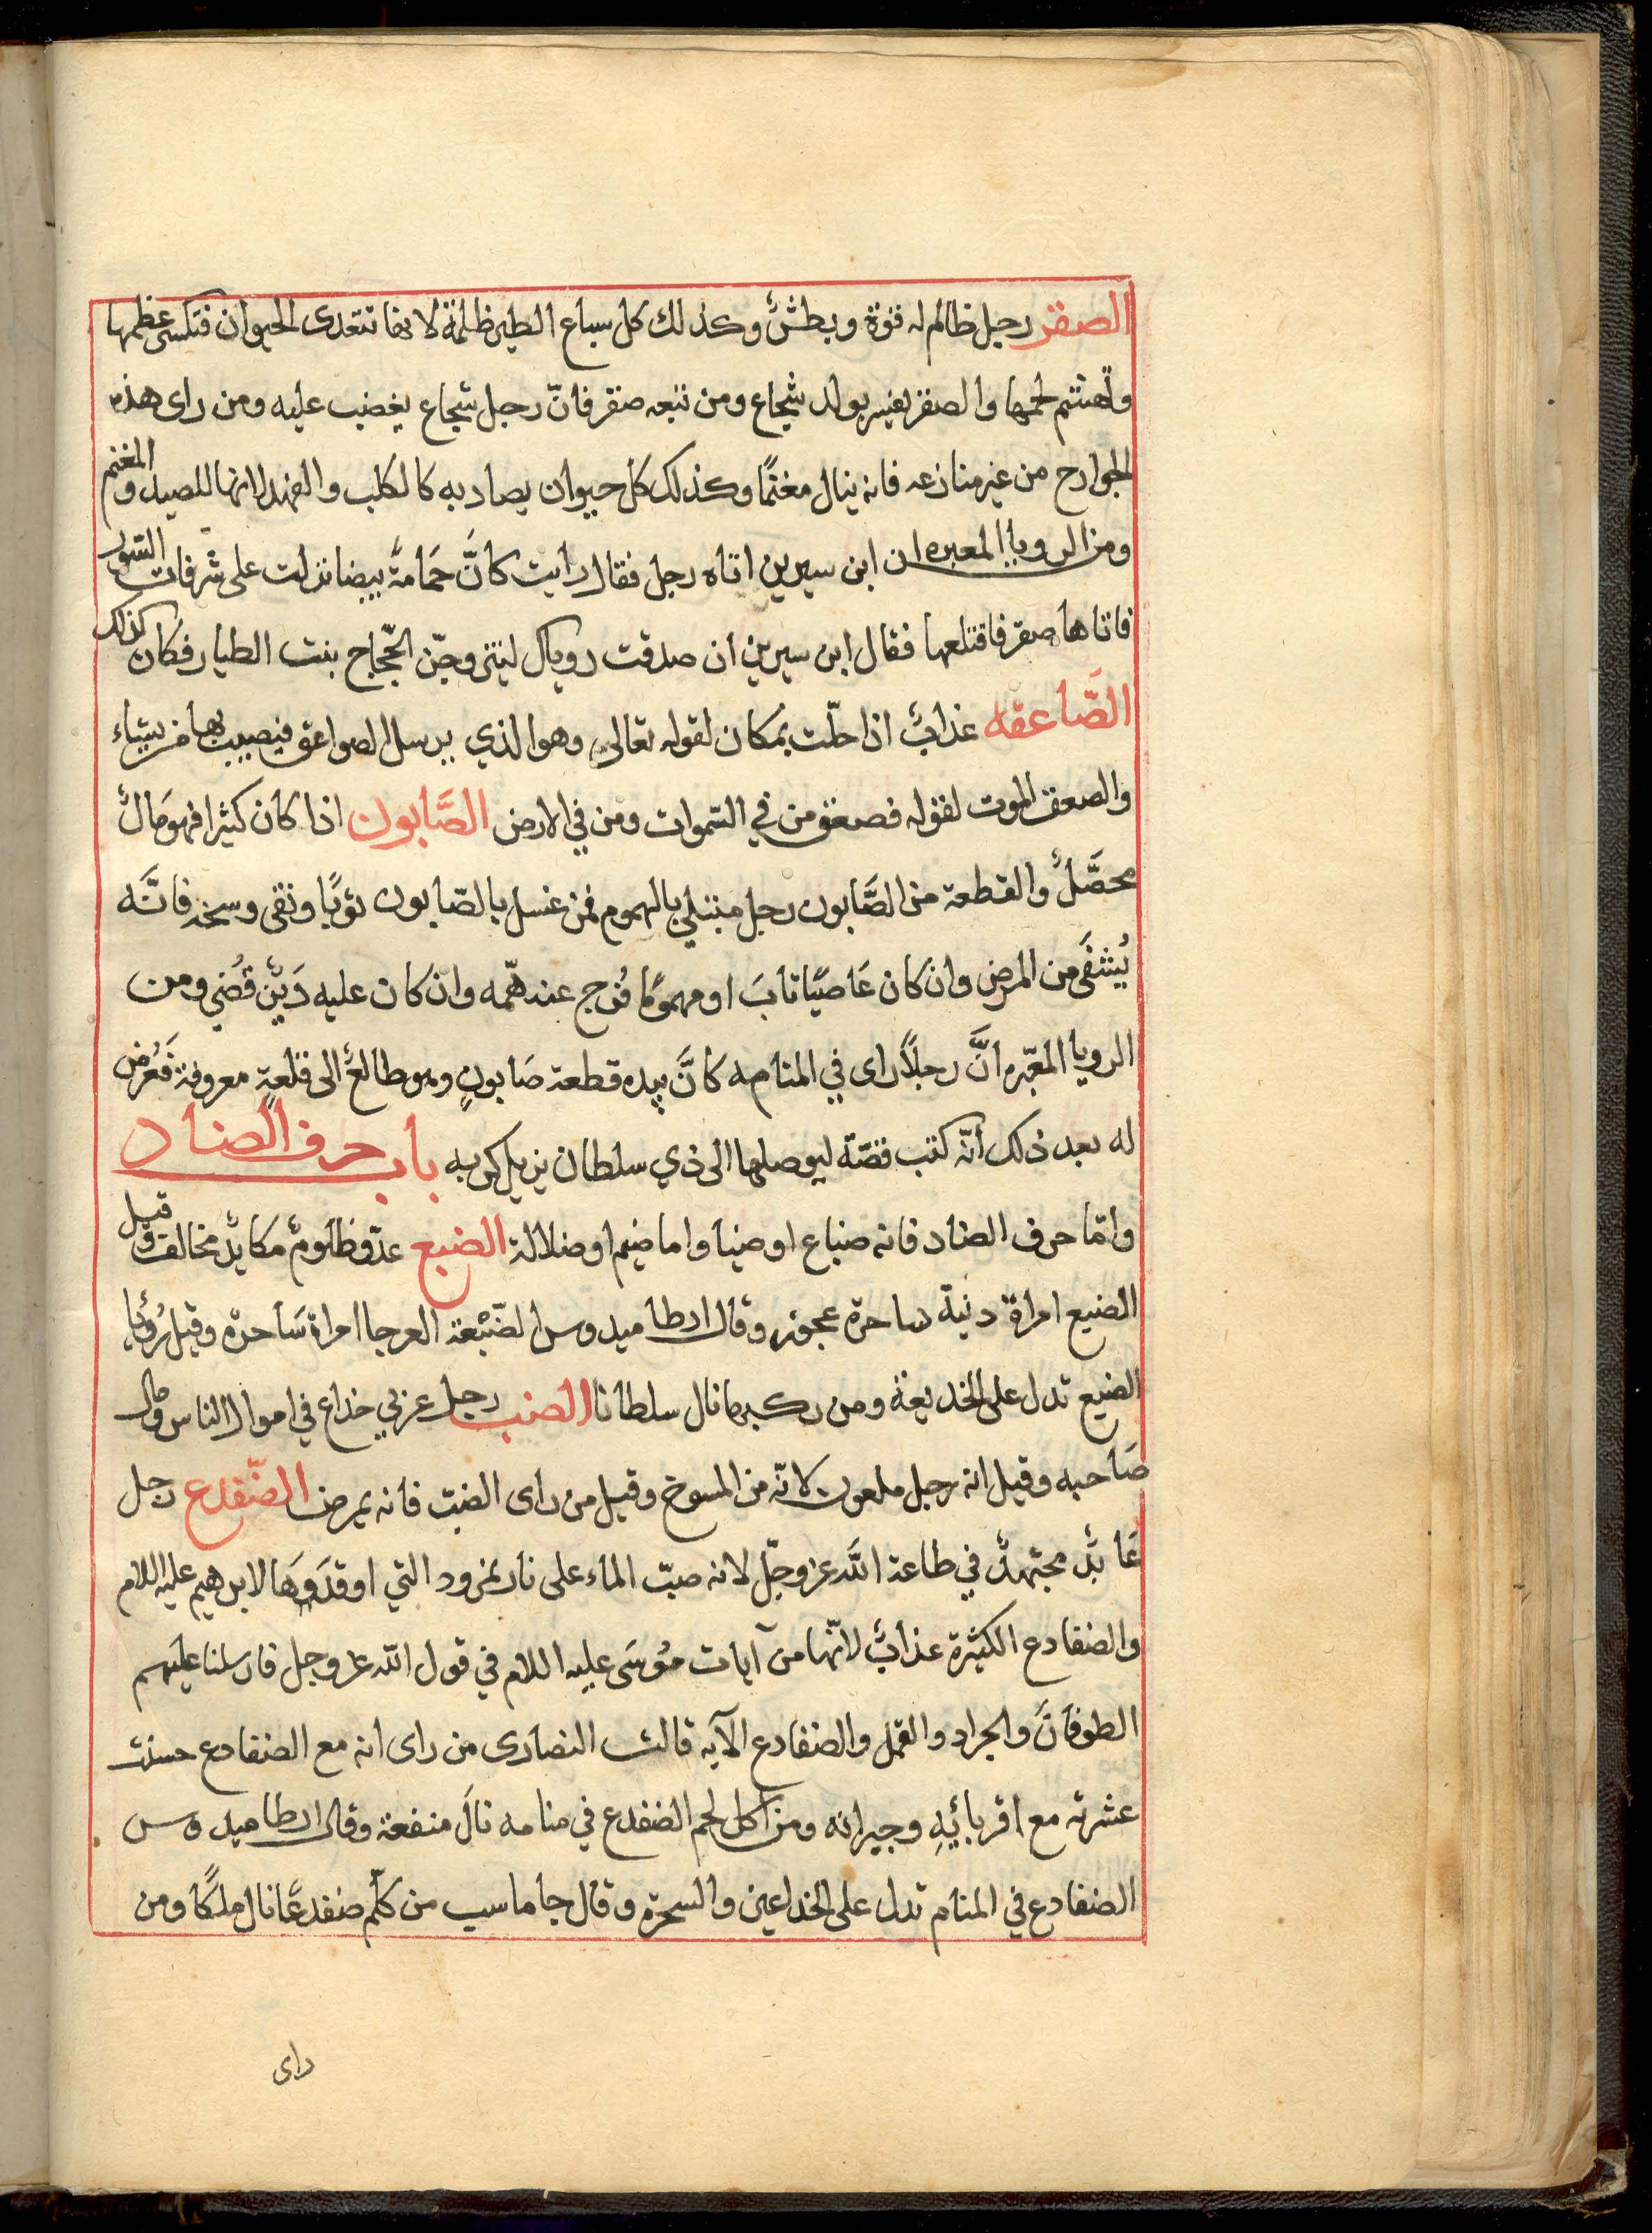 الصقر رجل ظالم له قوة وبطشٌ وكذلك كل سباع الطير ظلمة لانها تتعدى الحيوان فتكسر عظمها
وتهشم لحمها والصقر يفسر بولد شجاع ومن تبعه صقر فانّ رجل شجاع يغضب عليه ومن راى هذه
الجوارح من غير منازعه فانه ينال مغنمًا وكذلك كل حيوان يصاد به كالكلب والفهد لانها للصيد والمغنم
ومن الرويا المعبره ان ابن سيرين اتاه رجل فقال رايت كانَّ حَمَامَةً بيضا نزلت على شرفات السور
فاتاها صقر فاقتلعها فقال ابن سيرين ان صدقت روياك ليتزوجنّ الحّجاج بنت الطيار فكان كذلك
الصَّاعقه عذابٌ اذا حلّت بمكان لقوله تعالى وهو الذي يرسل الصواعق فيصيب بها من يشاء
والصعق الموت لقوله فصعق من في السّموات ومن في الارض الصَّابون اذا كان كثيرا فهو مَالٌ
محصَّلٌ والقطعة من الصَّابون رجل مبتلي بالهموم فمن غسل بالصّابون ثوبًا ونقى وسخه فانَّه
يُشفَى من المرض وان كان عَاصيًا تابَ او مهمومًا فُرج عنه همّه وان كان عليه دَينٌ قُضي ومن
الرويا المعّبره انَّ رجلًا راى في المنام كانَّ بيده قطعة صَابونٍ وهو طالعٌ الى قلعةٍ معروفة فَعُرض
له بعد ذلك أنّه كتب قصّة ليوصلها الى ذي سلطان يزيل كربه باب حرف الضاد
وامّا حرف الضاد فانه ضياع او ضيا واما ضيم او ضلالة الضبع عدّو ظلومٌ مكايدٌ مخالف وقيل
الضبع امراة دنية ساحرة عجوز وقال ارطاميدوس الضّبْعة العرجا امراة سَاحرة وقيل رُؤيا
الضبع تدل على الخديعة ومن ركبها نال سلطانا الضب رجل عربي خداع في اموال الناس ومال
صَاحبه وقيل انه رجل ملعون لانّه من المسوخ وقيل من راى الضبّ فانه يمرض الضّفدع رجل
عَابدٌ مجتهدٌ في طاعة اللَّه عز وجلّ لانه صبّ الماء على نار نمرود التي اوقدَوهَا لابرهيم عليه اللام
والضفادع الكثيرة عذابٌ لانّها من آيات مُوسَى عليه اللام في قول اللّه عز وجل فارسلنا عليهم
الطوفانَ والجراد والقمل والضفادع الآيه قالت النصارى من راى انه مع الضفادع حسنت
عشرته مع اقربائِهِ وجيرانه ومن اكل لحم الضفدع في منامه نالَ منفعة وقال ارطاميدوس
الضفادع في المنام تدل على الخداعين والسحرة وقال جاماسب من كلّم ضفدعًا نال ملكًا ومن
راى